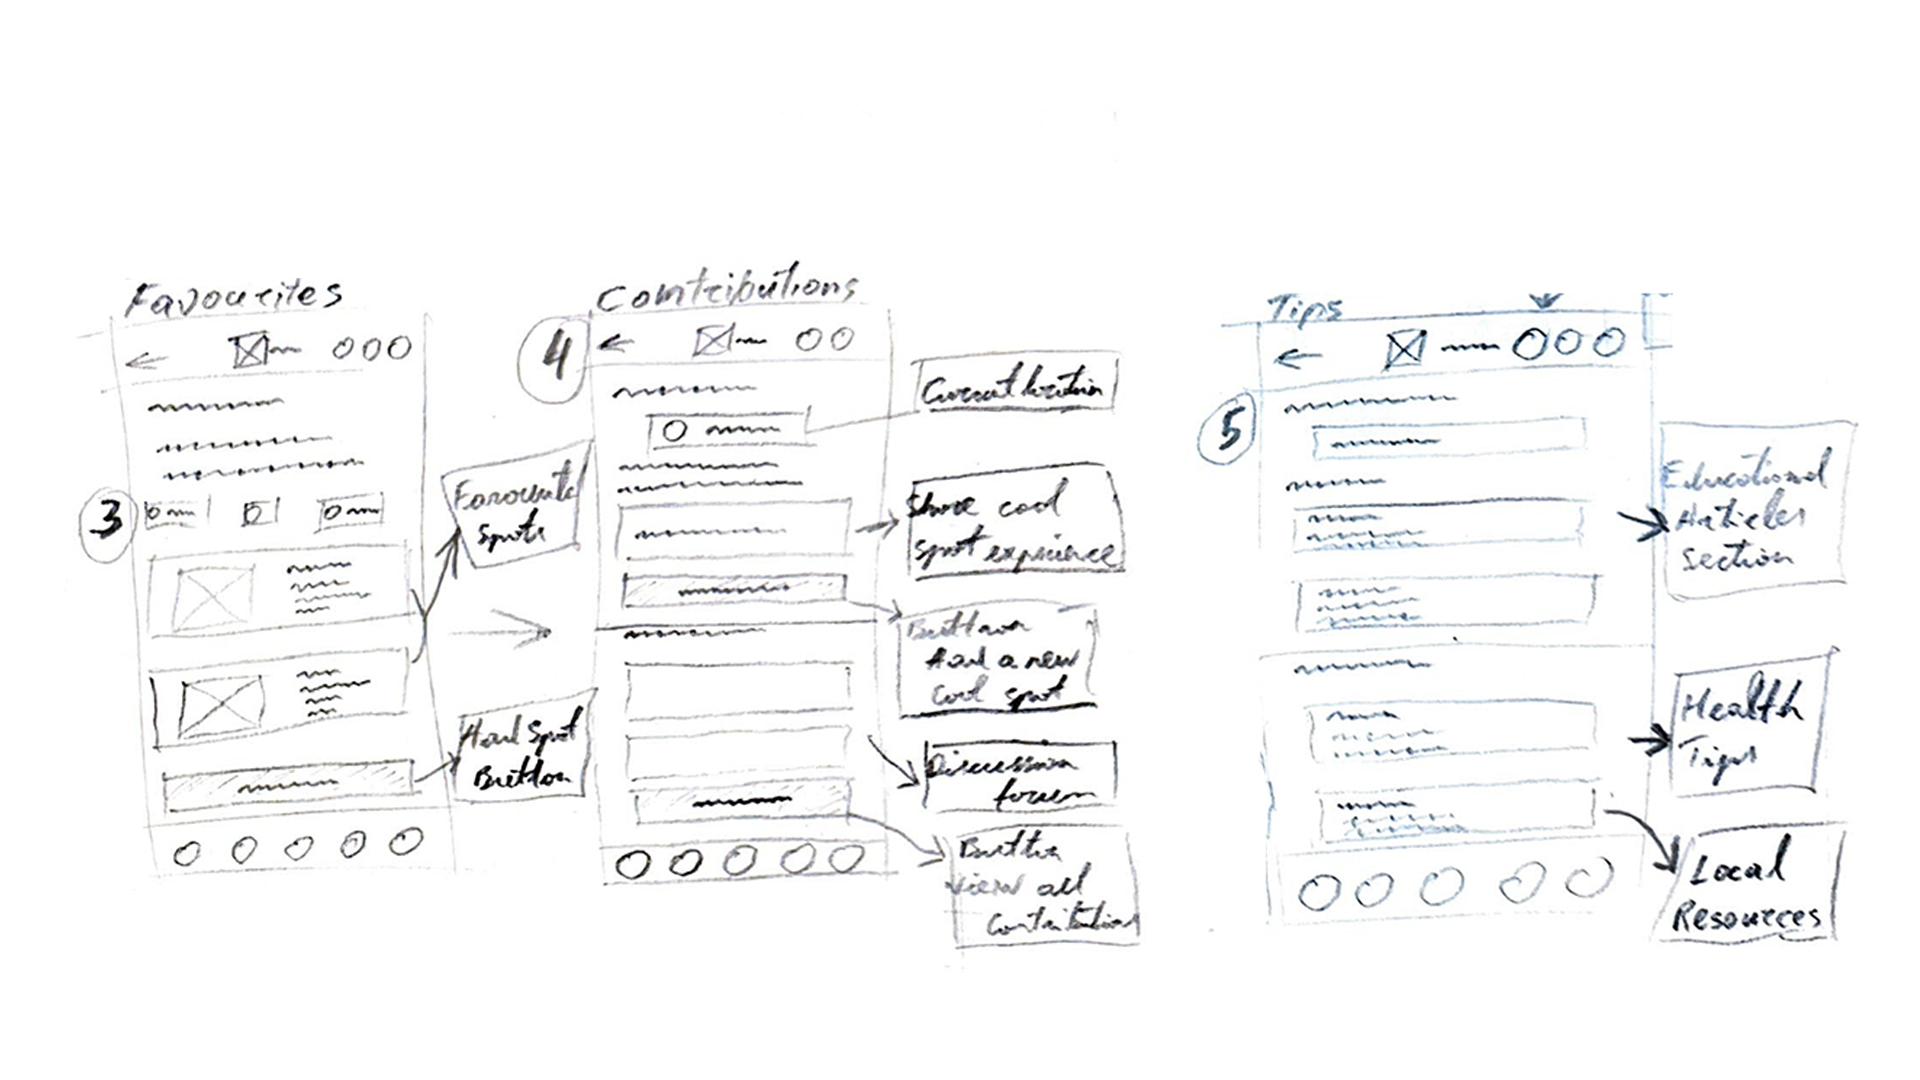 Favourites
3
Favourite
Spots
Add Spot
Button
Contributions
4
Current location
Share cool
spot experience
Button
Add a new
cool spot
Discussion
forum
Button
view all
contributions
Tips
5
Educational
Articles
section
Health
Tips
Local
Resources